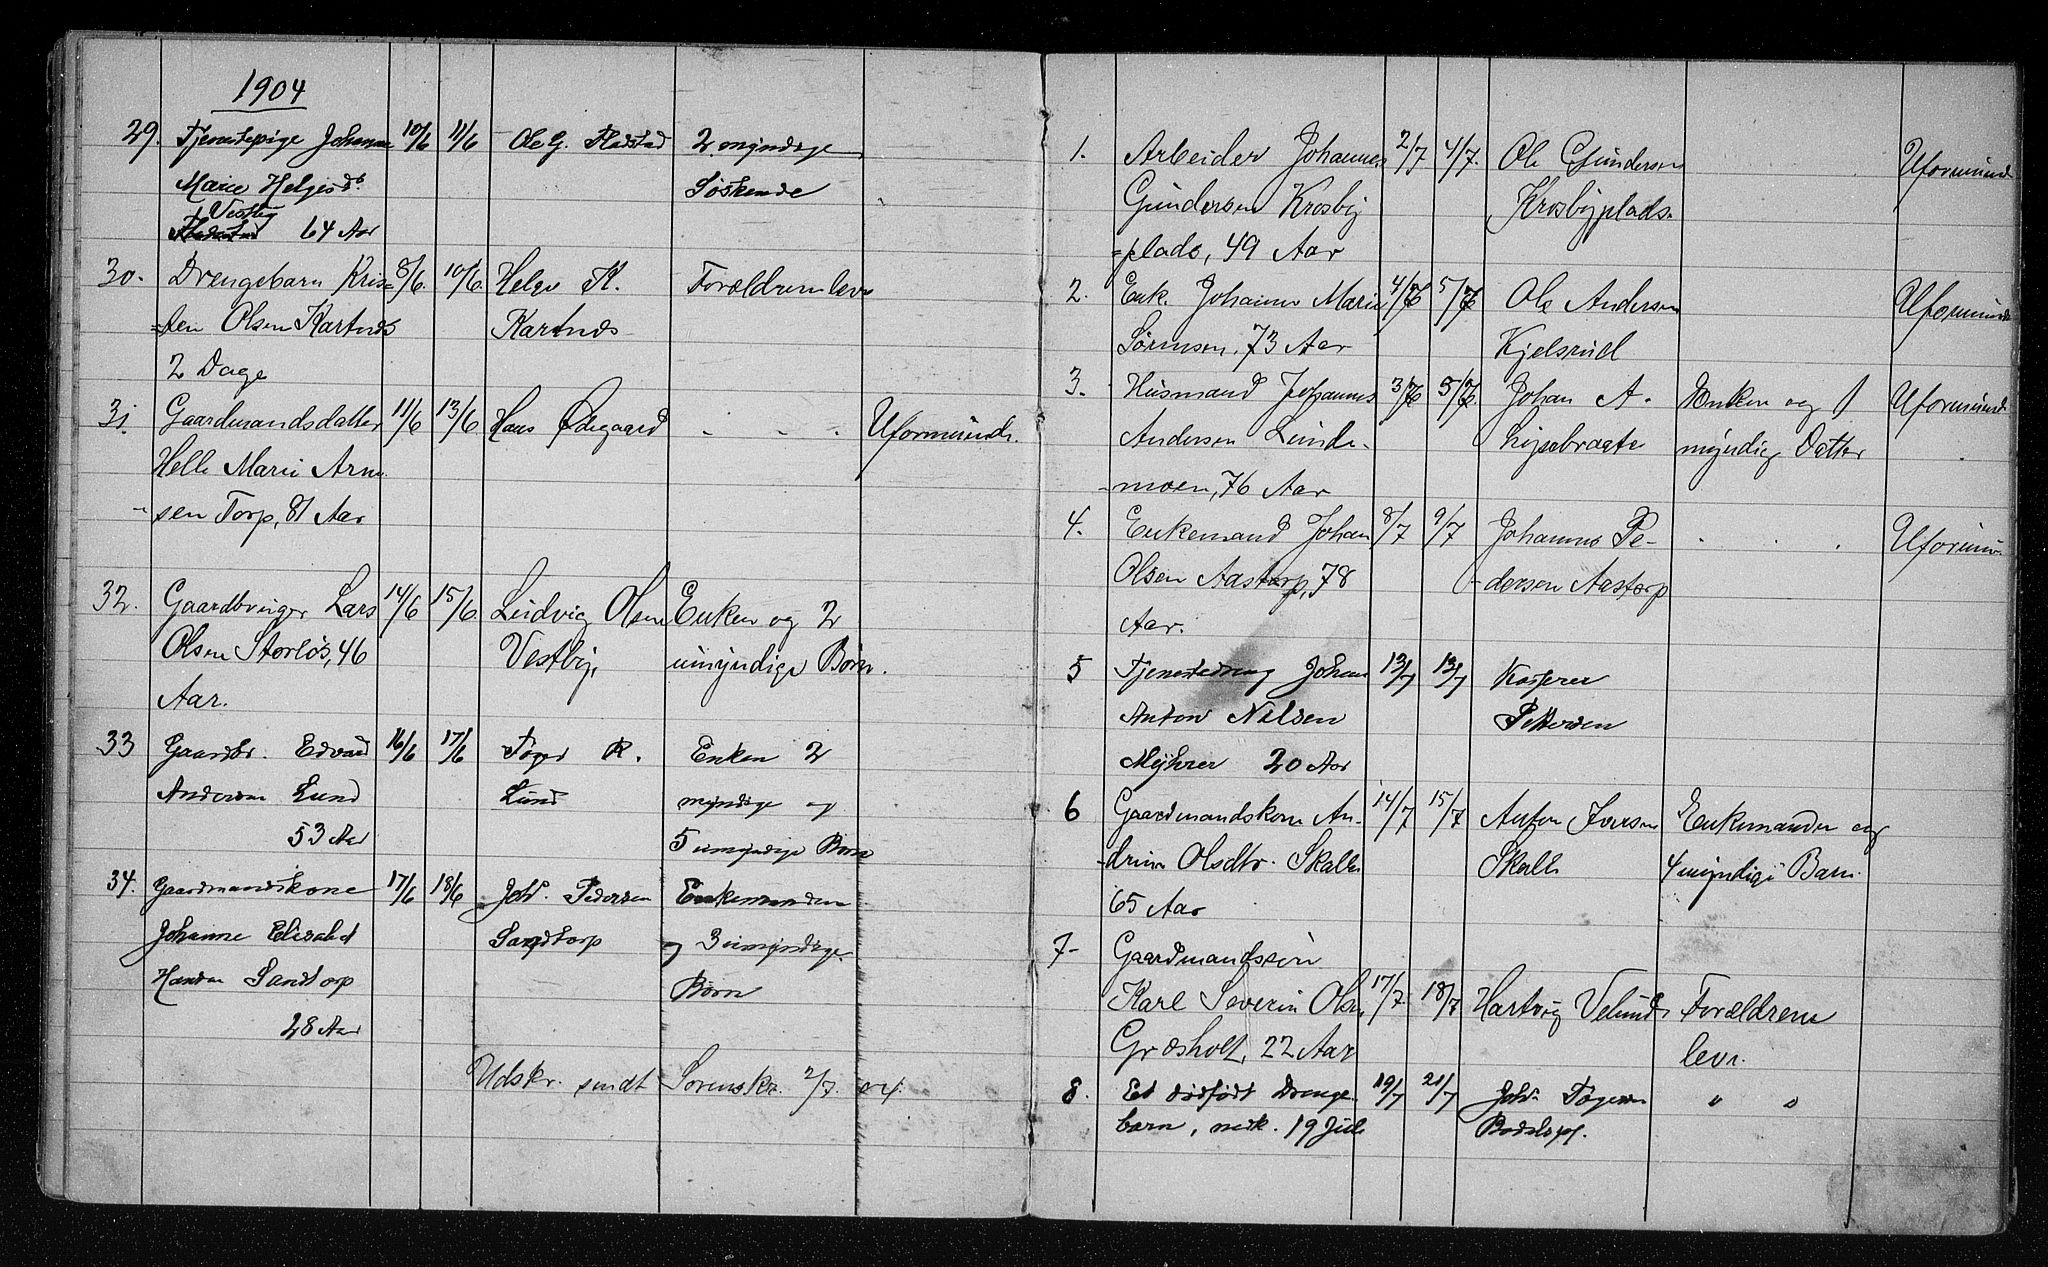 1904
29. Tjenestepige Johanne 10/6 11/6 Ole G. Fladstad 2 myndige
Marie Helgesd. Søskende
Vestby
64 Aar
30. Drengebarn Kris= 8/6. 10/6. Helge K. Forældrene leve
=ten Olsen Kartnes Kartnes
2 Dage
31. Gaardmandsdatter 11/6 13/6 Hans Ødegaard - - - Uformuende.
Helle Marie Arne
-sen Torp, 81 Aar
32. Gaardbruger Lars 14/6 15/6. Ludvig Olsen Enken og 2
Olsen Storløs, 46 Vestby, umyndige Børn.
Aar.
33 Gaardbr. Edvard 16/6 17/6 Tøger R. Enken 2
Andersen Lund Lund myndige og
53 Aar 5 umyndige Børn
34. Gaardmandskone 17/6 18/6 Johs. Pedersen Enkemanden
Johanne Elisabet Sandtorp og 3 umyndige
Hansen Sandtorp Børn
28 Aar
Udskr. sendt Sorenskr. 2/7. 04.
1. Arbeider Johannes 2/7 4/7. Ole Gundersen Uformuend
Gundersen Krosby Krosbyplads.
=plads, 49 Aar
2. Enk. Johanne Marie 4/7 5/7 Ole Andersen Uformuende
Sørensen, 73 Aar Kjelsrud
3. Husmand Johannes 3/7 5/7. Johan A. Enken og 1 Uformuend
Andersen Lunde- myndig Datter
-moen, 76 Aar
4. Enkemand Johan 8/7 9/7 Johannes Pe- . . . Uformue
Olsen Aastorp, 78 -dersen Aastorp
Aar.
5 Tjenestedreng Johan 13/7 13/7 Kasper
Anton Nilsen Pettersen
Myhrer 20 Aar
6 Gaardmandskone An- 14/7 15/7 Anton Iversen Enkemanden og
-drine Olsdtr. Skalle Skalle 4 myndige Børn.
65 Aar
7- Gaardmandssøn
Karl Severin Olsen 17/7. 18/7 Hartvig Velund Forældrene
Græsholt, 22 Aar leve.
8. Et dødfødt Drenge- 19/7 21/7 Johs. Tøgersen " "
barn, nedk. 19 Juli